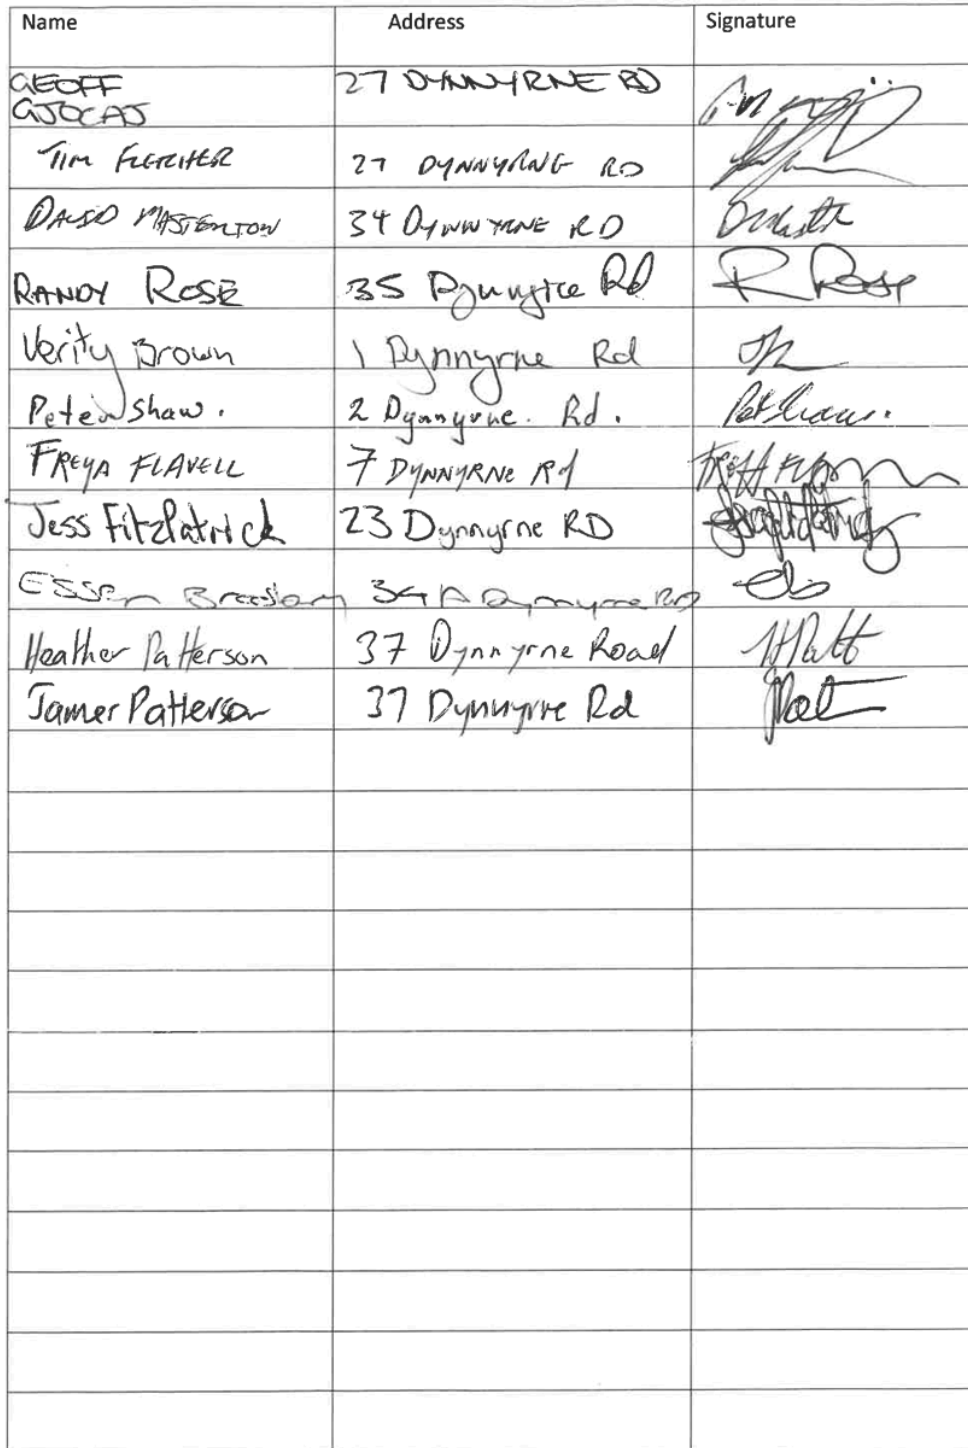 Name Address Signature
GEOFF 27 DYNNYRNE RD
GJOCAJ
TIM FLETCHER 27 DYNNYRNE RD
DAVID MASTERTON 34 DYNNYRNE RD
RANDY ROSE 35 Dynnyrne Rd R Rose
Verity Brown 1 Dynnyrne Rd
Peter Shaw. 2 Dynnyrne. Rd.
FREYA FLAVELL 7 DYNNYRNE Rd
Jess Fitzpatrick 23 Dynnyrne RD
34A Dynnyrne RD
Heather Patterson 37 Dynnyrne Road HPatt
James Patterson 37 Dynnyrne Rd